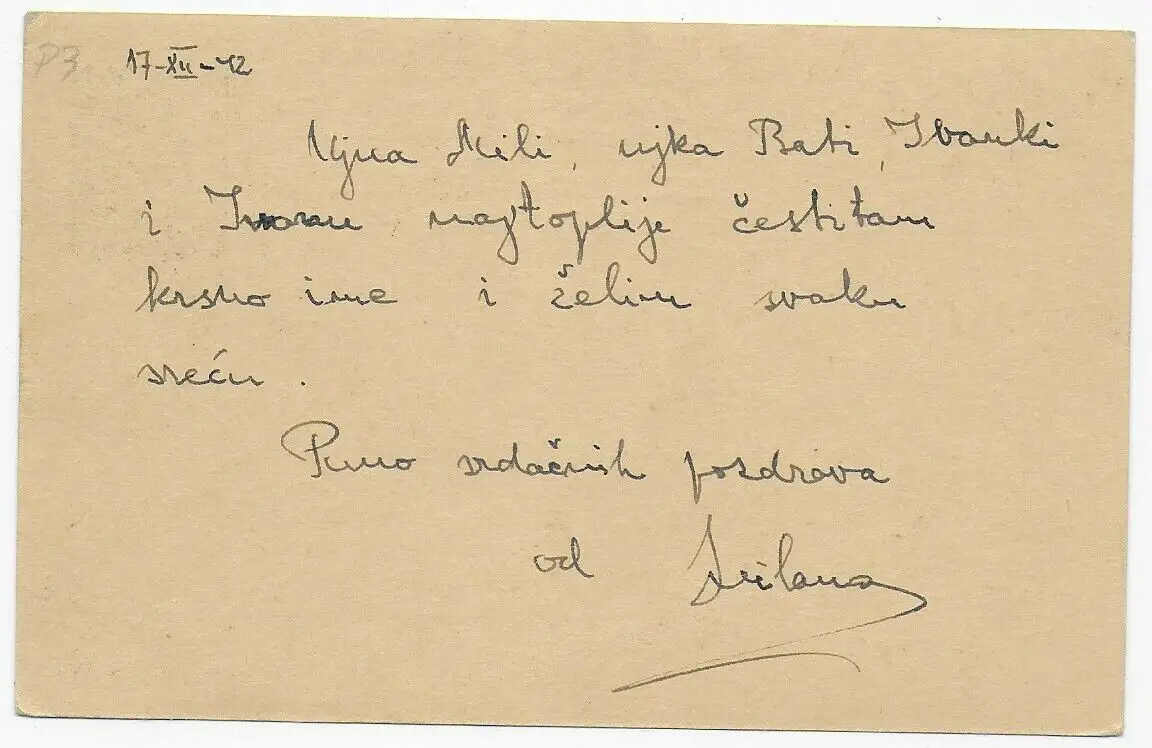 P3 17-XII-42
Ujna Mili, ujka Bati, Ivanki
i Ivanu najtoplije čestitam
krsno ime i želim svaku
sreću.
Puno srdačnih pozdrava
od Milana